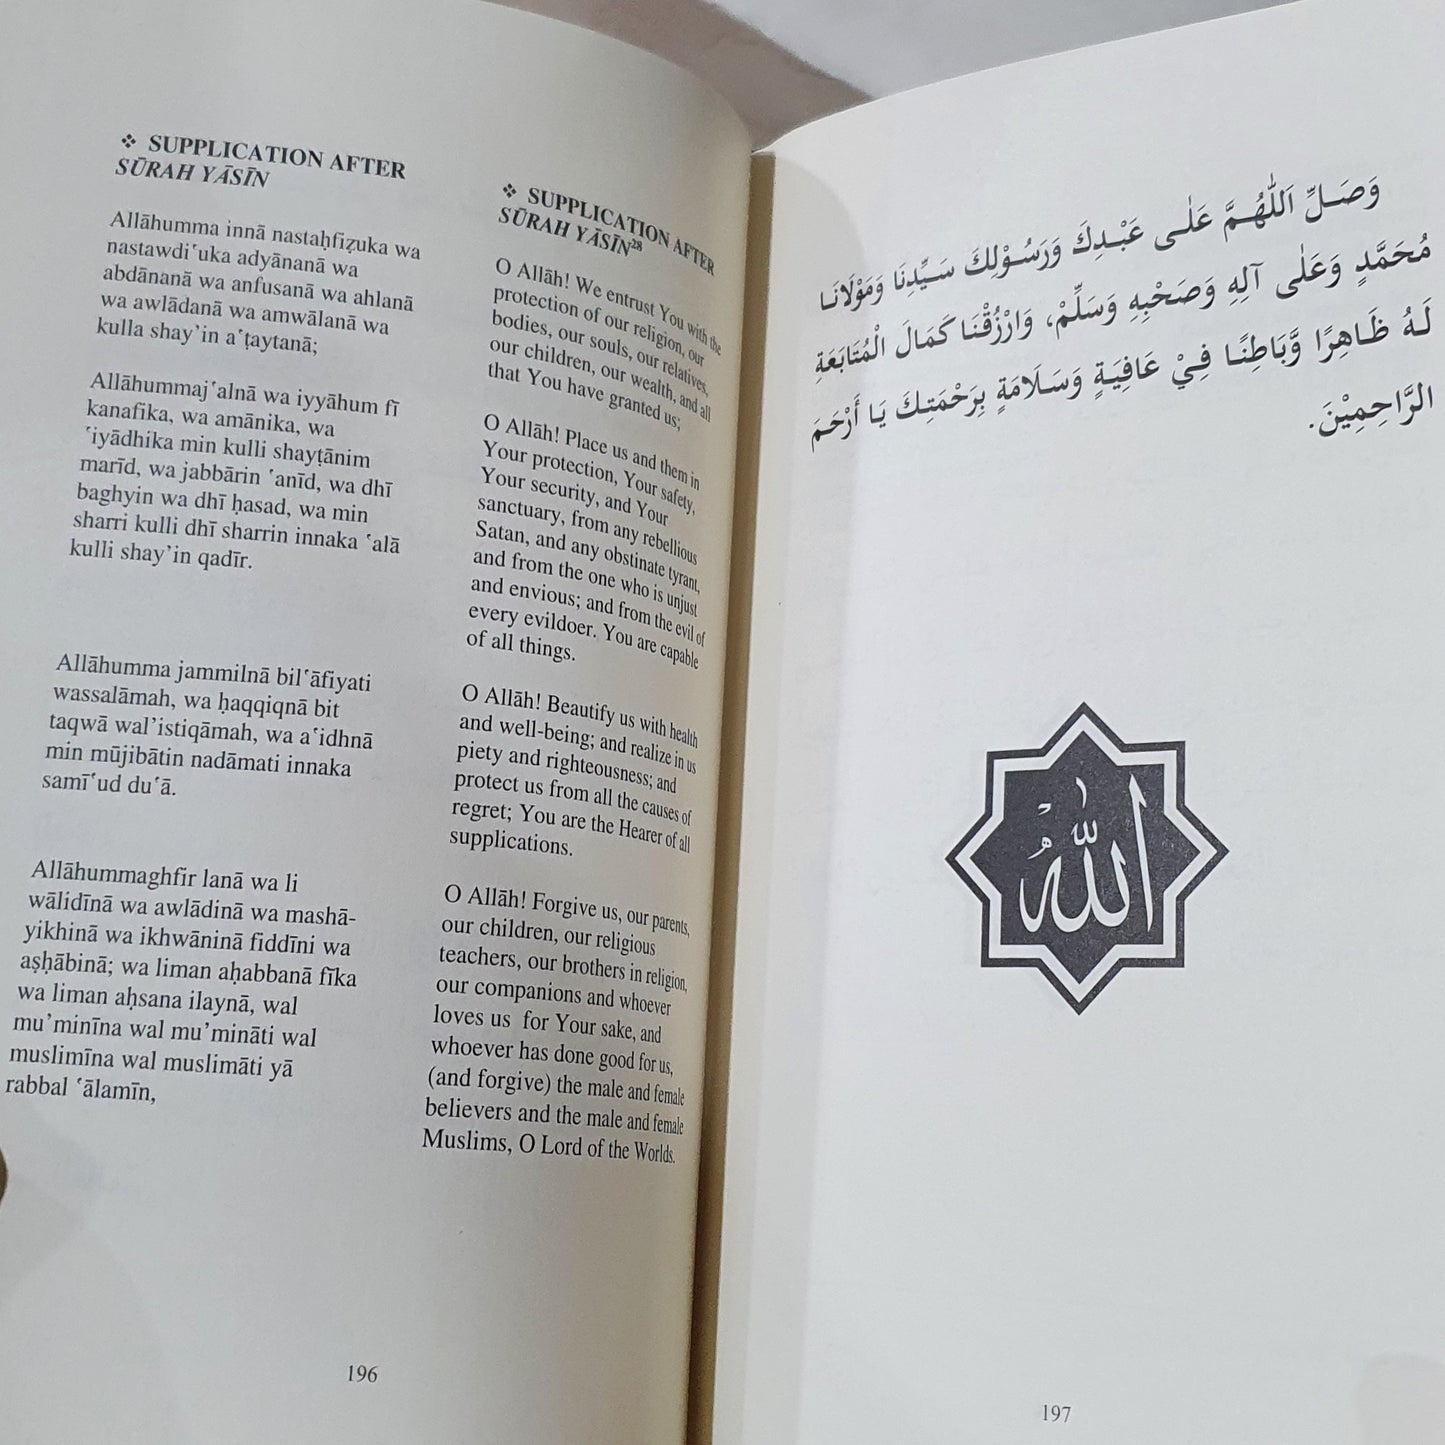 ❖ SUPPLICATION AFTER
SŪRAH YĀSĪN
Allāhumma innā nastaḥfiẓuka wa
nastawdi‘uka adyānanā wa
abdānanā wa anfusanā wa ahlanā
wa awlādanā wa amwālanā wa
kulla shay’in a‘ṭaytanā;
Allāhummaj‘alnā wa iyyāhum fī
kanafika, wa amānika, wa
‘iyādhika min kulli shayṭānim
marīd, wa jabbārin ‘anīd, wa dhī
baghyin wa dhī ḥasad, wa min
sharri kulli dhī sharrin innaka ‘alā
kulli shay’in qadīr.
Allāhumma jammilnā bil‘āfiyati
wassalāmah, wa ḥaqqiqnā bit
taqwā wal’istiqāmah, wa a‘idhnā
min mūjibātin nadāmati innaka
samī‘ud du‘ā.
Allāhummaghfir lanā wa li
wālidīnā wa awlādinā wa mashā-
yikhinā wa ikhwāninā fiddīni wa
aṣḥābinā; wa liman aḥabbanā fīka
wa liman aḥsana ilaynā, wal
mu’minīna wal mu’mināti wal
muslimīna wal muslimāti yā
rabbal ‘ālamīn,
❖ SUPPLICATION AFTER
SŪRAH YĀSĪN28
O Allāh! We entrust You with the
protection of our religion, our
bodies, our souls, our relatives,
our children, our wealth, and all
that You have granted us;
O Allāh! Place us and them in
Your protection, Your safety,
Your security, and Your
sanctuary, from any rebellious
Satan, and any obstinate tyrant,
and from the one who is unjust
and envious; and from the evil of
every evildoer. You are capable
of all things.
O Allāh! Beautify us with health
and well-being; and realize in us
piety and righteousness; and
protect us from all the causes of
regret; You are the Hearer of all
supplications.
O Allāh! Forgive us, our parents,
our children, our religious
teachers, our brothers in religion,
our companions and whoever
loves us for Your sake, and
whoever has done good for us,
(and forgive) the male and female
believers and the male and female
Muslims, O Lord of the Worlds.
196
وَصَلِّ اَللّٰهُمَّ عَلٰى عَبْدِكَ وَرَسُوْلِكَ سَيِّدِنَا وَمَوْلَانَا
مُحَمَّدٍ وَعَلٰى آلِهِ وَصَحْبِهِ وَسَلِّمْ، وَارْزُقْنَا كَمَالَ الْمُتَابَعَةِ
لَهُ ظَاهِرًا وَّبَاطِنًا فِيْ عَافِيَةٍ وَسَلَامَةٍ بِرَحْمَتِكَ يَا أَرْحَمَ
الرَّاحِمِيْنَ.
اللهُ
197